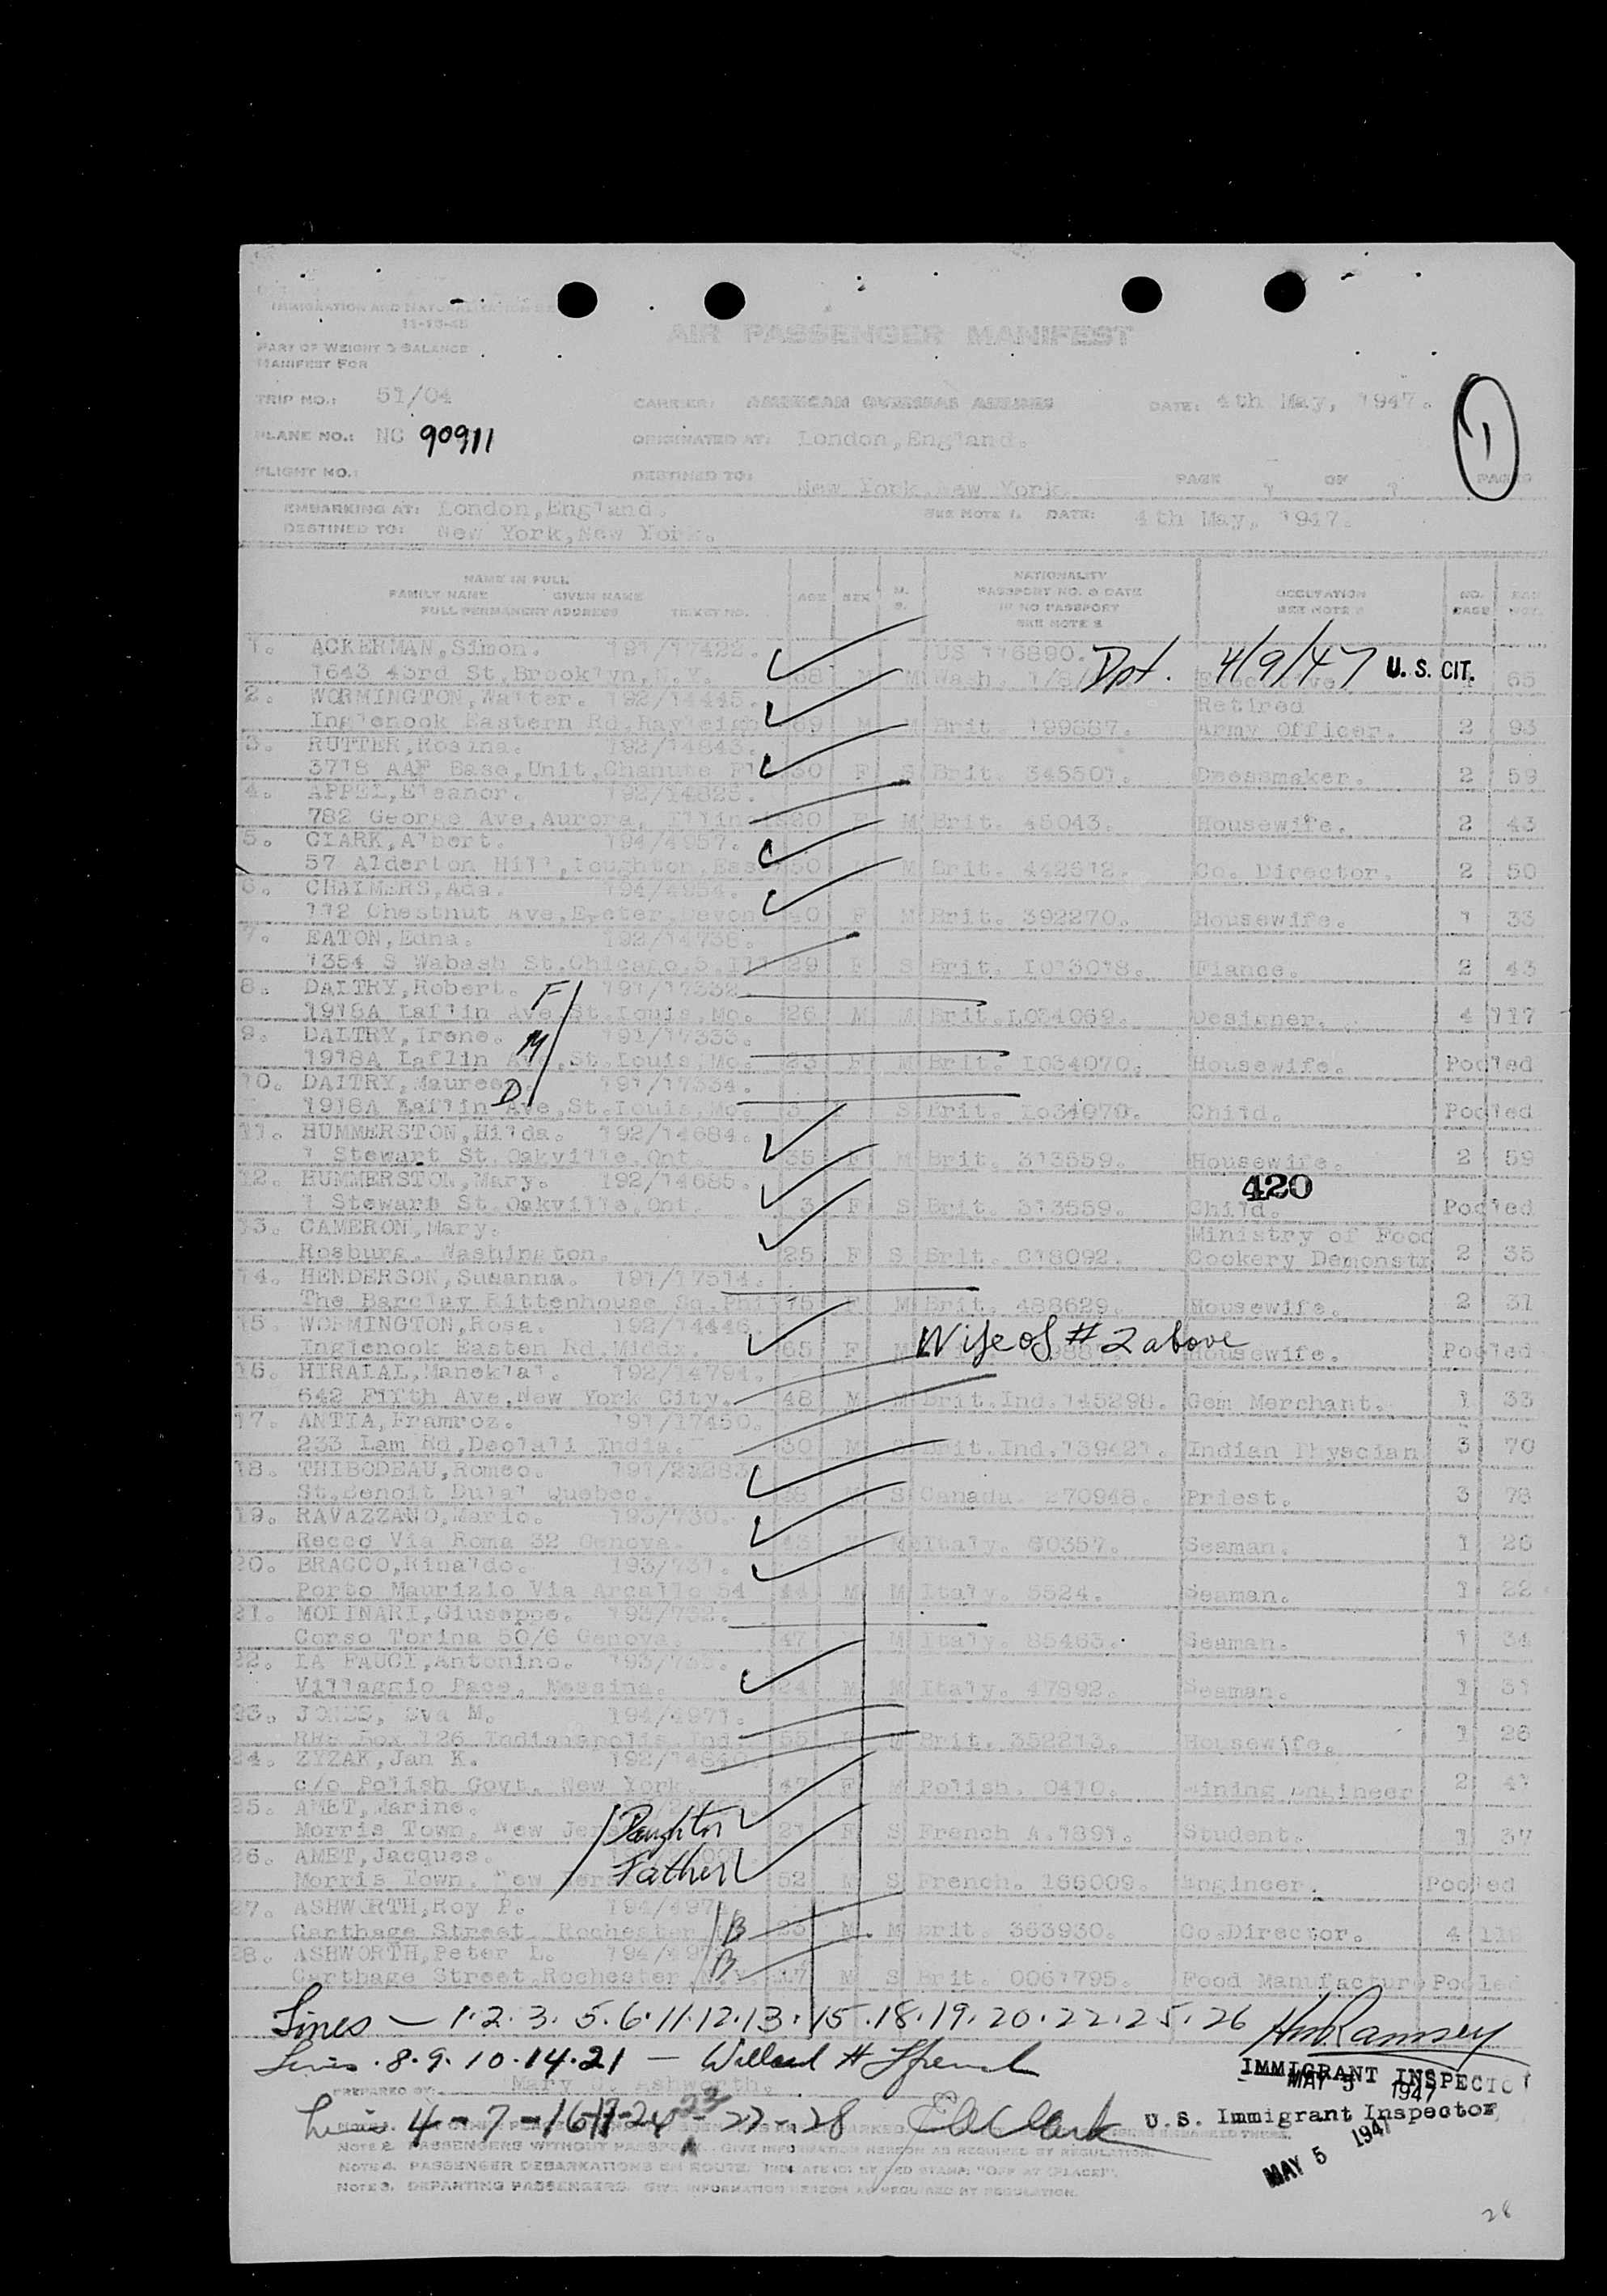 IMMIGRATION AND NATURALIZATION
11-15-45
AIR PASSENGER MANIFEST
PART OF WEIGHT & BALANCE
MANIFEST FOR
TRIP NO.: 51/04 CARRIER: AMERICAN OVERSEAS AIRLINES DATE: 4th May, 1947. 1
PLANE NO.: NC 90911 ORIGINATED AT: London,England.
FLIGHT NO.: DESTINED TO: New York,New York. PAGE 1 OF 1 PAGES
EMBARKING AT: London,England. SEE NOTE 1. DATE: 4th May, 1947.
DESTINED TO: New York,New York.
NAME IN FULL
FAMILY NAME GIVEN NAME
FULL PERMANENT ADDRESS TICKET NO. AGE SEX M. S. NATIONALITY PASSPORT NO. & DATE IF NO PASSPORT SEE NOTE 2 OCCUPATION SEE NOTE NO. BAGS
1. ACKERMAN,Simon. 191/17422. US 116890.
1643 43rd St,Brooklyn,N.Y. 68 M M Wash. Dpt. 4/9/47 U. S. CIT. Executive. 65
2. WORMINGTON,Walter. 192/14445. Retired
Inglenook Eastern Rd,Rayleigh 69 M M Brit. 199887. Army Officer. 2 93
3. RUTTER,Rosina. 192/14843.
3718 AAF Base,Unit,Chanute Fl 30 F S Brit. 345501. Dressmaker. 2 59
4. APPEL,Eleanor. 192/14826.
782 George Ave,Aurora, Illin 20 F M Brit. 45043. Housewife. 2 43
5. CLARK,Albert. 194/4957.
57 Alderton Hill,Loughton,Ess 50 M M Brit. 442612. Co. Director. 2 50
6. CHALMERS,Ada. 194/4954.
112 Chestnut Ave,Exeter,Devon. 40 F M Brit. 392270. Housewife. 1 33
7. EATON,Edna. 192/14738.
1354 S Wabash St.Chicago,5.Ill 29 F S Brit. L013018. Fiance. 2 43
8. DALTRY,Robert. F 191/17332
1918A Laflin Ave,St.Louis,Mo. 26 M M Brit.L034069. Designer. 4 117
9. DALTRY,Irene. M 191/17333.
1918A Laflin Av,St.Louis,Mo. 23 F M Brit. L034070. Housewife. Pooled
10. DALTRY,Maureen. D 191/17334.
1918A Laflin Ave,St.Louis,Mo. 3 F S Brit. Lo34070. Child. Pooled
11. HUMMERSTON,Hilda. 192/14684.
1 Stewart St.Oakville,Ont. 35 F M Brit. 313559. Housewife. 2 59
12. HUMMERSTON,Mary. 192/14685. 420
1 Stewart St.Oakville,Ont. 3 F S Brit. 313559. Child. Pooled
13. CAMERON,Mary. Ministry of Food
Rosburg. Washington. 25 F S Brit. C18092. Cookery Demonstr 2 35
14. HENDERSON,Susanna. 191/17514.
The Barclay Rittenhouse Sq.Phi 75 F M Brit. 488629. Housewife. 2 31
15. WORMINGTON,Rosa. 192/14446.
Inglenook Easten Rd,Middx. 65 F M Wife of # 2 above Housewife. Pooled
16. HIRALAL,Maneklal. 192/14794.
642 Fifth Ave,New York City. 48 M M Brit.Ind.145298. Gem Merchant. 1 33
17. ANTIA,Framroz. 191/17450.
233 Lam Rd,Deolali India. 30 M S Brit.Ind.139421. Indian Physcian 3 70
18. THIBODEAU,Romeo. 191/22283
St.Benoit Dulal Quebec. M S Canada. 270948. Priest. 3 78
19. RAVAZZANO,Mario. 193/730.
Recco Via Roma 32 Genova. 43 M M Italy. 60357. Seaman. 1 26
20. BRACCO,Rinaldo. 193/731.
Porto Maurizio Via Arcallo 54 44 M M Italy. 5524. Seaman. 1 22
21. MOLINARI,Giuseppe. 193/732.
Corso Torina 50/6 Genova. 47 M Italy. 85463. Seaman. 1 34
22. LA FAUCI,Antonino. 193/733.
Villaggio Pace, Messina. 24 M M Italy. 47892. Seaman. 1 31
23. JONES, Eva M. 194/4971.
Box 126 Indianapolis,Ind. 55 F M Brit. 352213. Housewife. 1 26
24. ZYZAK,Jan K. 192/14840.
c/o Polish Govt. New York. 47 F M Polish. 0410. Mining Engineer 2 41
25. AMET,Marine.
Morris Town, New Jers Daughter 21 F S French A.1891. Student. 1 37
26. AMET,Jacques.
Morris Town. New Jers Father 52 M S French. 166009. Engineer. Pooled
27. ASHWORTH,Roy P. 194/497
Carthage Street, Rochester B 23 M M Brit. 363930. Co.Director. 4
28. ASHWORTH,Peter L. 194/497
Carthage Street,Rochester,N.Y. B 17 M S Brit. 0061795. Food Manufactur Pooled
Lines — 1. 2. 3. 5. 6. 11. 12. 13. 15. 18. 19. 20. 22. 25. 26 Ramsey
IMMIGRANT INSPECTOR
MAY 5 1947
Lines. 8. 9. 10. 14. 21 — Willard H French
PREPARED BY: Mary J. Ashworth.
Lines 4 - 7 - 16-17-24 - 23 - 27 - 28 E A Clark U.S. Immigrant Inspector
MAY 5 1947
NOTE 2. PASSENGERS WITHOUT PASSPORT. GIVE INFORMATION HEREON AS REQUIRED BY REGULATION.
NOTE 4. PASSENGER DEBARKATIONS EN ROUTE. INDICATE (O) BY RED STAMP. "OFF AT (PLACE)".
NOTE 3. DEPARTING PASSENGERS. GIVE INFORMATION HEREON AS REQUIRED BY REGULATION.
28